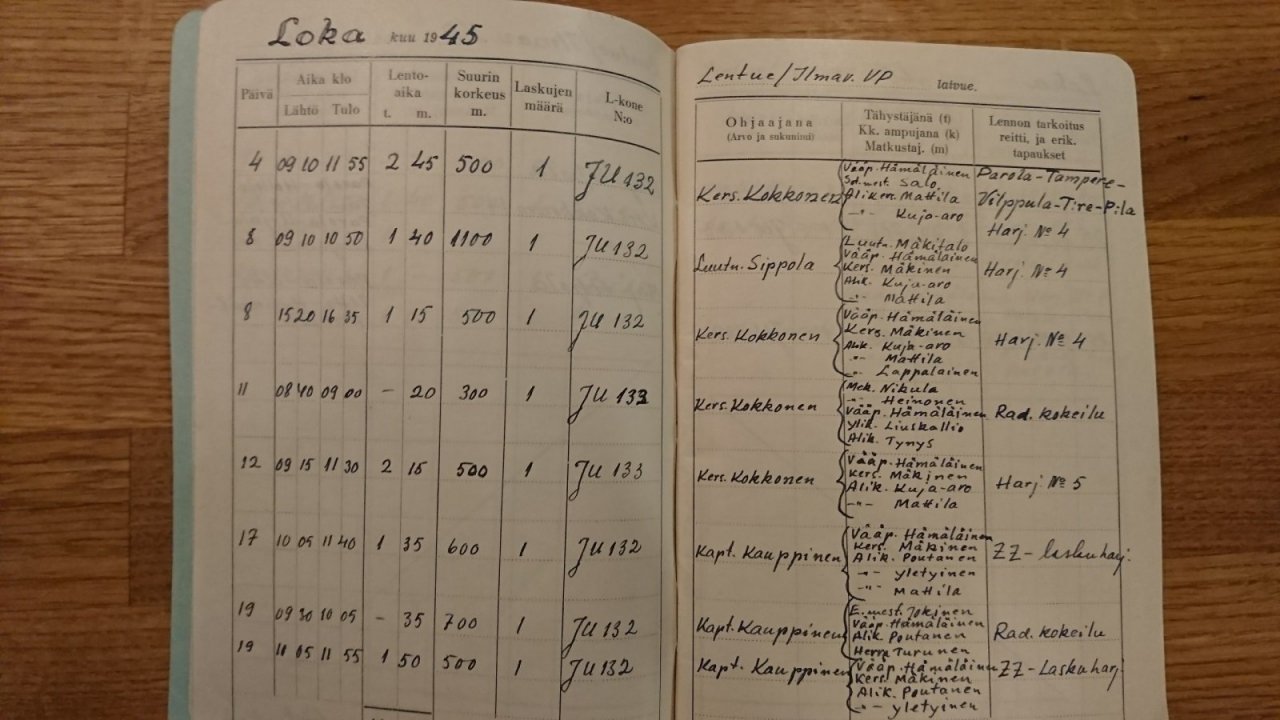 Loka kuu 1945
Päivä
Aika klo
Lähtö Tulo
Lento-
aika
t. m.
Suurin
korkeus
m.
Laskujen
määrä
L-kone
N:o
4 09 10 11 55 2 45 500 1 JU 132
8 09 10 10 50 1 40 1100 1 JU 132
8 15 20 16 35 1 15 500 1 JU 132
11 08 40 09 00 - 20 300 1 JU 133
12 09 15 11 30 2 15 500 1 JU 133
17 10 05 11 40 1 35 600 1 JU 132
19 09 30 10 05 - 35 700 1 JU 132
19 10 05 11 55 1 50 500 1 JU 132
Lentue/Ilmav. VP laivue.
Ohjaajana
(Arvo ja sukunimi)
Tähystäjänä (t)
Kk. ampujana (k)
Matkustaj. (m)
Lennon tarkoitus
reitti, ja erik.
tapaukset
Kers. Kokkonen
Vääp. Hämäläinen
Sd.mest. Salo
Aliken. Mattila
-"- Kuja-aro
Parola-Tampere-
Vilppula-T:re-P:la
Harj. № 4
Luutn. Sippola
Luutn. Mäkitalo
Vääp. Hämäläinen
Kers. Mäkinen
Alik. Kuja-aro
-"- Mattila
Harj. № 4
Kers. Kokkonen
Vääp. Hämäläinen
Kers. Mäkinen
Alik. Kuja-aro
-"- Mattila
-"- Lappalainen
Harj. № 4
Kers. Kokkonen
Mek. Nikula
-"- Heinonen
Vääp. Hämäläinen
Ylik. Liuskallio
Alik. Tynys
Rad. kokeilu
Kers. Kokkonen
Vääp. Hämäläinen
Kers. Mäkinen
Alik. Kuja-aro
-"- Mattila
Harj. № 5
Kapt. Kauppinen
Vääp. Hämäläinen
Kers. Mäkinen
Alik. Poutanen
-"- yletyinen
-"- Mattila
ZZ-laskuharj.
Kapt. Kauppinen
E.mest. Jokinen
Vääp. Hämäläinen
Alik. Poutanen
Herra Turunen
Rad. kokeilu
Kapt. Kauppinen
Vääp. Hämäläinen
Kers. Mäkinen
Alik. Poutanen
-"- yletyinen
ZZ-Laskuharj.